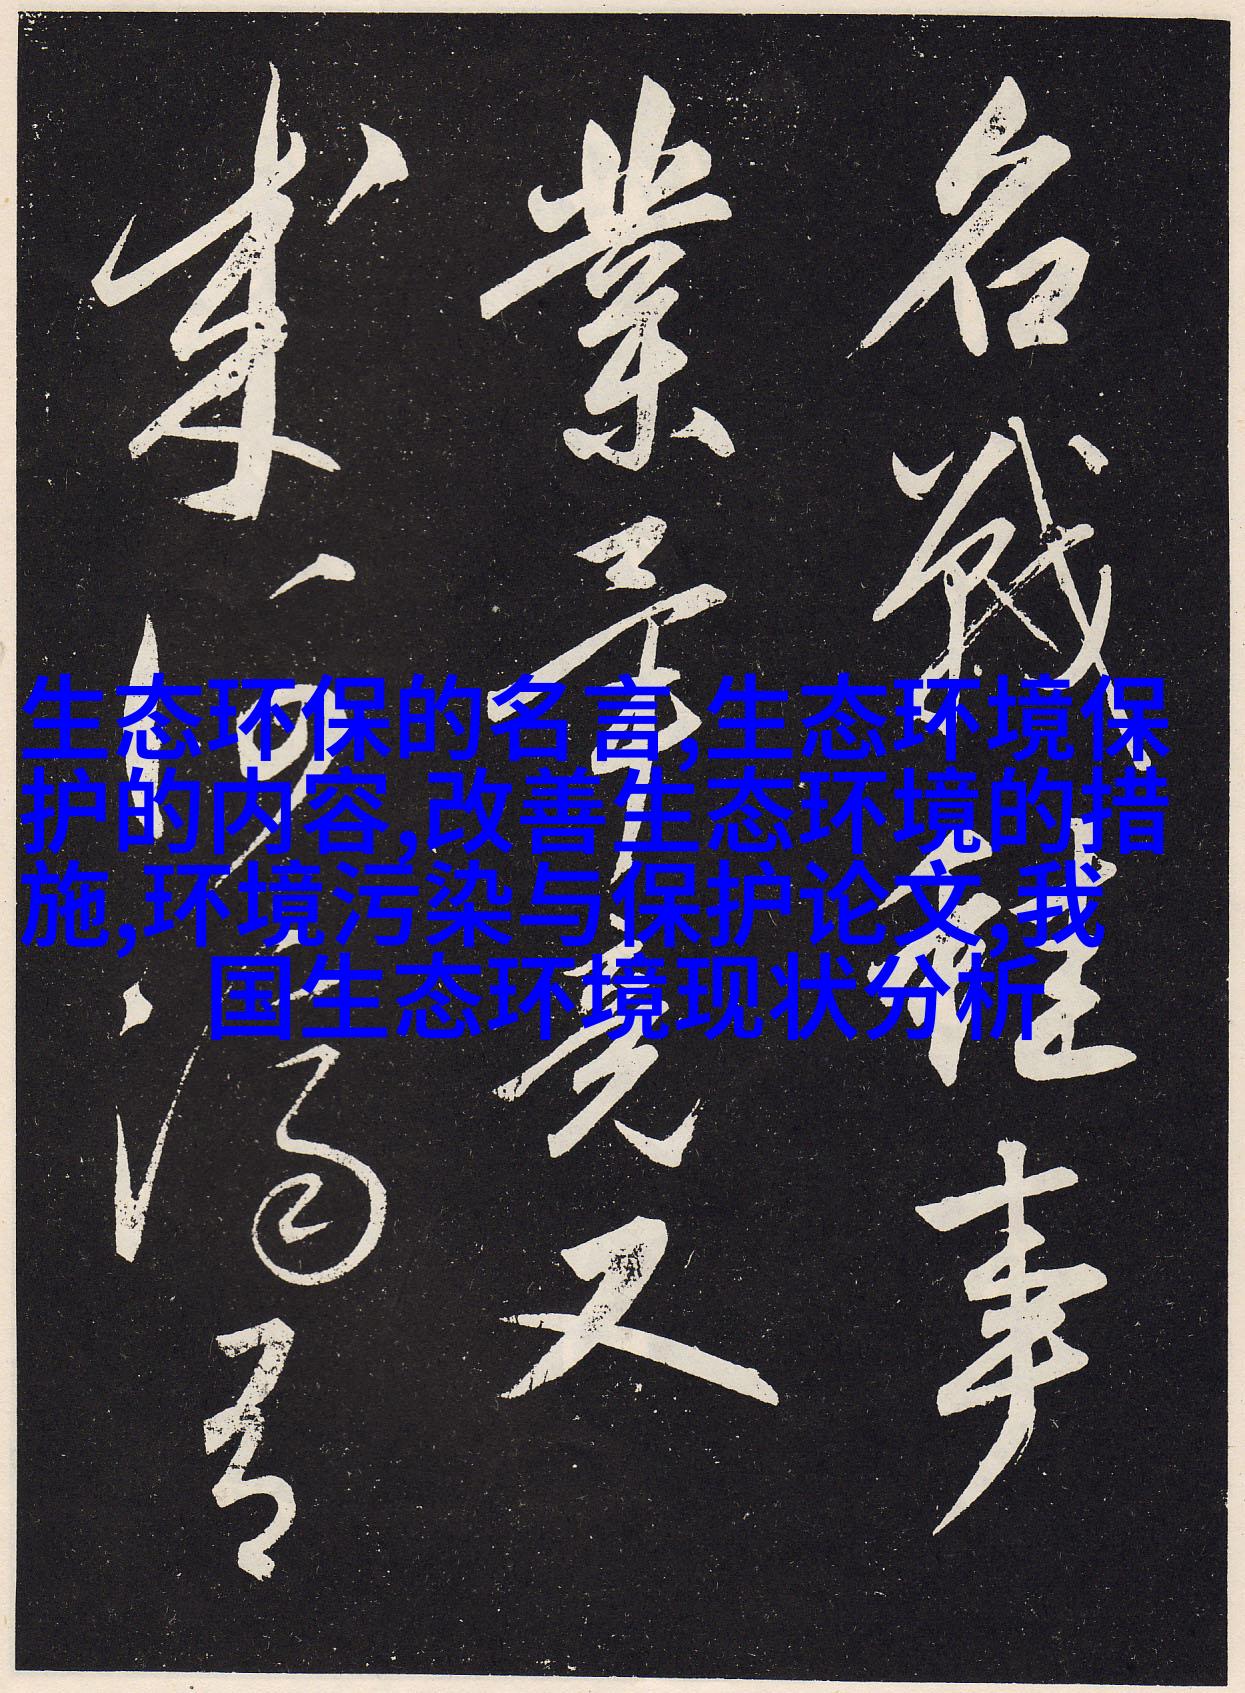 名戦雖事
業章竟又
成河渴言
生态环保的名言,生态环境保
护的内容,改善生态环境的措
施,环境污染与保护论文,我
国生态环境现状分析